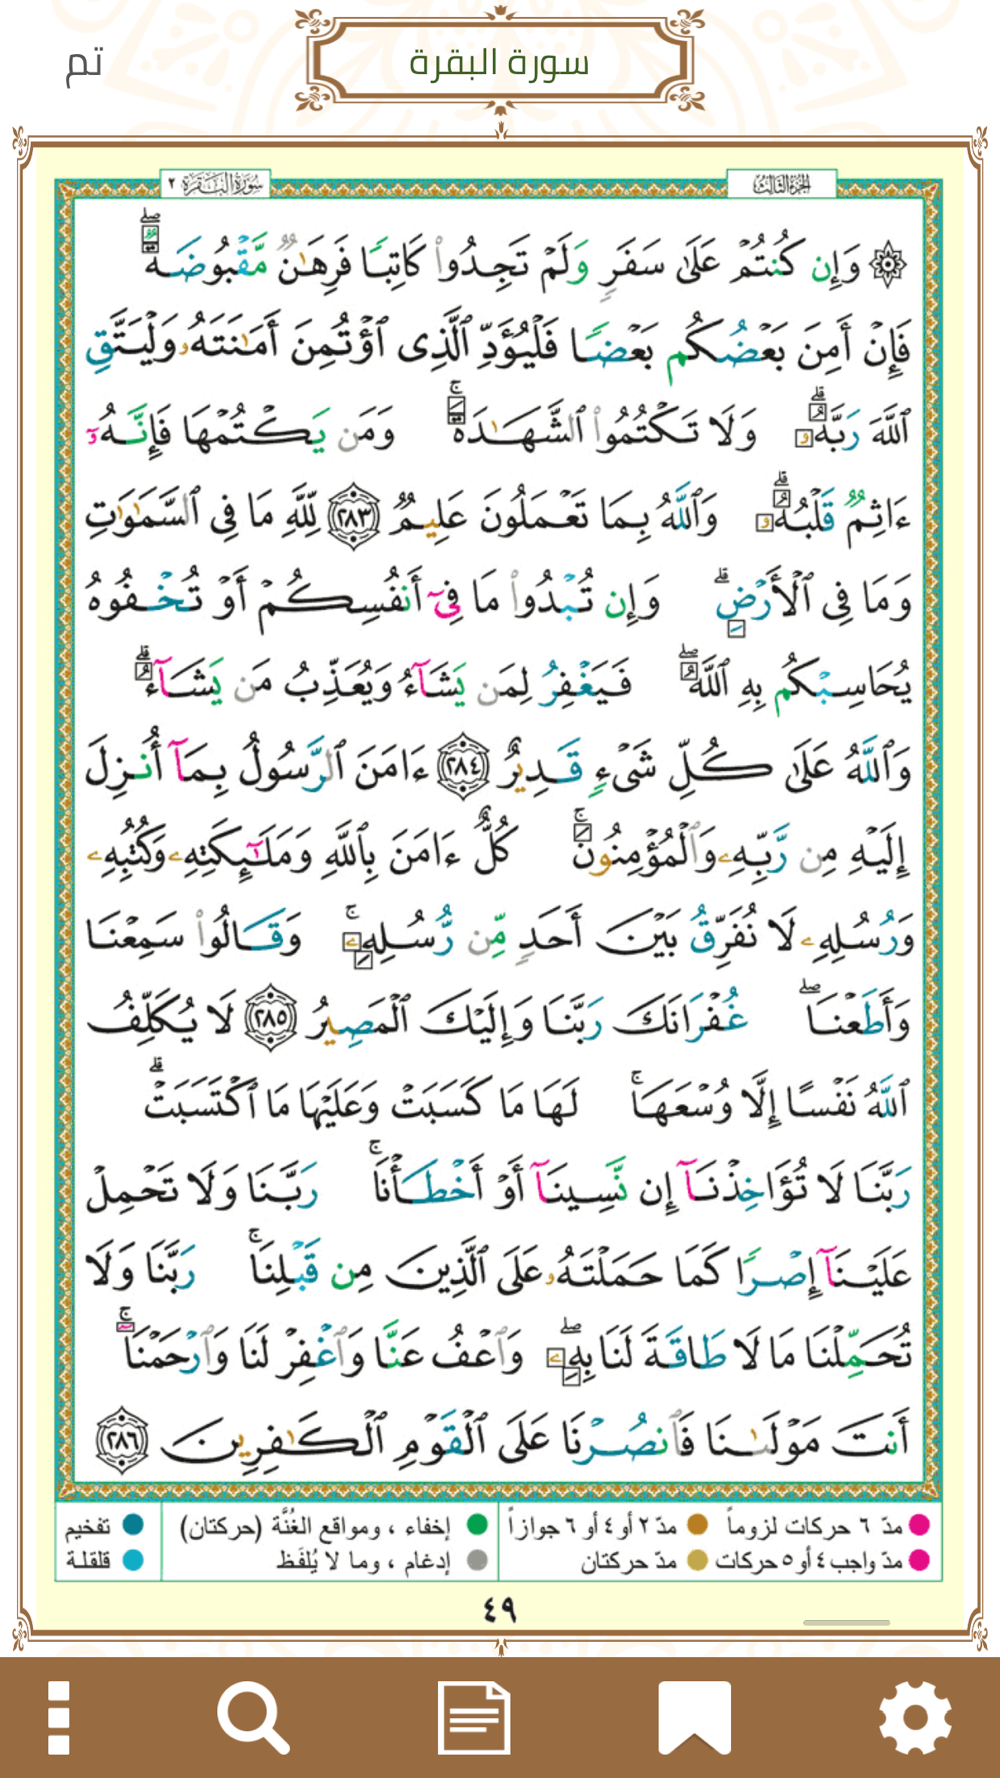 سورة البقرة
تم
الجزء الثالث
سورة البقرة ٢
۞ وَإِن كُنتُمْ عَلَىٰ سَفَرٍ وَلَمْ تَجِدُوا۟ كَاتِبًا فَرِهَـٰنٌ مَّقْبُوضَةٌ ۖ
فَإِنْ أَمِنَ بَعْضُكُم بَعْضًا فَلْيُؤَدِّ ٱلَّذِى ٱؤْتُمِنَ أَمَـٰنَتَهُۥ وَلْيَتَّقِ
ٱللَّهَ رَبَّهُۥ ۗ وَلَا تَكْتُمُوا۟ ٱلشَّهَـٰدَةَ ۚ وَمَن يَكْتُمْهَا فَإِنَّهُۥٓ
ءَاثِمٌ قَلْبُهُۥ ۗ وَٱللَّهُ بِمَا تَعْمَلُونَ عَلِيمٌ ٢٨٣ لِّلَّهِ مَا فِى ٱلسَّمَـٰوَٰتِ
وَمَا فِى ٱلْأَرْضِ ۗ وَإِن تُبْدُوا۟ مَا فِىٓ أَنفُسِكُمْ أَوْ تُخْفُوهُ
يُحَاسِبْكُم بِهِ ٱللَّهُ ۖ فَيَغْفِرُ لِمَن يَشَآءُ وَيُعَذِّبُ مَن يَشَآءُ ۗ
وَٱللَّهُ عَلَىٰ كُلِّ شَىْءٍ قَدِيرٌ ٢٨٤ ءَامَنَ ٱلرَّسُولُ بِمَآ أُنزِلَ
إِلَيْهِ مِن رَّبِّهِۦ وَٱلْمُؤْمِنُونَ ۚ كُلٌّ ءَامَنَ بِٱللَّهِ وَمَلَـٰٓئِكَتِهِۦ وَكُتُبِهِۦ
وَرُسُلِهِۦ لَا نُفَرِّقُ بَيْنَ أَحَدٍ مِّن رُّسُلِهِۦ ۚ وَقَالُوا۟ سَمِعْنَا
وَأَطَعْنَا ۖ غُفْرَانَكَ رَبَّنَا وَإِلَيْكَ ٱلْمَصِيرُ ٢٨٥ لَا يُكَلِّفُ
ٱللَّهُ نَفْسًا إِلَّا وُسْعَهَا ۚ لَهَا مَا كَسَبَتْ وَعَلَيْهَا مَا ٱكْتَسَبَتْ ۗ
رَبَّنَا لَا تُؤَاخِذْنَآ إِن نَّسِينَآ أَوْ أَخْطَأْنَا ۚ رَبَّنَا وَلَا تَحْمِلْ
عَلَيْنَآ إِصْرًا كَمَا حَمَلْتَهُۥ عَلَى ٱلَّذِينَ مِن قَبْلِنَا ۚ رَبَّنَا وَلَا
تُحَمِّلْنَا مَا لَا طَاقَةَ لَنَا بِهِۦ ۖ وَٱعْفُ عَنَّا وَٱغْفِرْ لَنَا وَٱرْحَمْنَآ ۚ
أَنتَ مَوْلَىٰنَا فَٱنصُرْنَا عَلَى ٱلْقَوْمِ ٱلْكَـٰفِرِينَ ٢٨٦
مدّ ٦ حركات لزوماً مدّ ٢ أو ٤ أو ٦ جوازاً إخفاء ، ومواقع الغُنَّة (حركتان) تفخيم
مدّ واجب ٤ أو ٥ حركات مدّ حركتان إدغام ، وما لا يُلفَظ قلقلة
٤٩